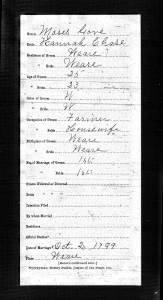 Groom, Moses Gove
Bride, Hannah Chase
Residence of Groom, Weare
" " Bride, Weare
Age of Groom, 25
" " Bride, 23
Color of Groom, W
" " Bride, W
Occupation of Groom, Farmer
" " Bride, Housewife
Birthplace of Groom, Weare
" " Bride, Weare
No. of Marriage of Groom, 1st
" " " " Bride, 1st
Groom Widowed or Divorced,
Bride " " "
Intention Filed
By whom Married
Residence
Official Station*
Date of Marriage, Oct. 2, 1799
Place Weare
*Clergyman, Notary Public, Justice of the Peace, etc.